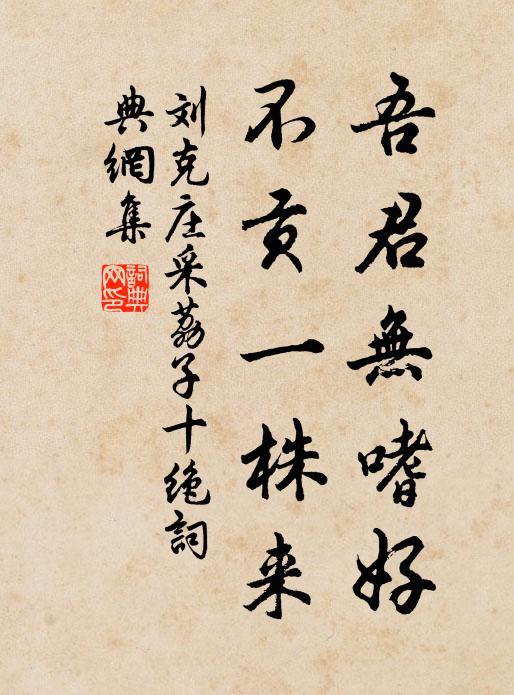 吾君無嗜好
不贡一株来
刘克庄采荔子十绝词
典網集
詞典網印